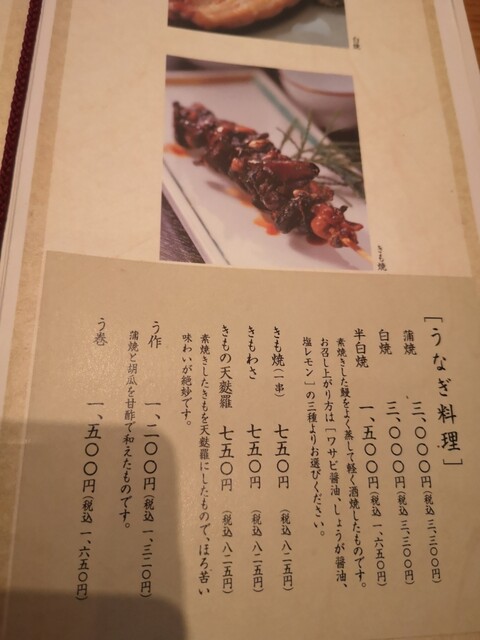 白焼
きも焼
［うなぎ料理］
蒲焼 三、〇〇〇円（税込 三、三〇〇円）
白焼 三、〇〇〇円（税込 三、三〇〇円）
半白焼 一、五〇〇円（税込 一、六五〇円）
素焼きした鰻をよく蒸して軽く酒焼したものです。
お召し上がり方は「ワサビ醤油、しょうが醤油、
塩レモン」の三種よりお選びください。
きも焼（一串） 七五〇円（税込 八二五円）
きもわさ 七五〇円（税込 八二五円）
きもの天麩羅 七五〇円（税込 八二五円）
素焼きしたきもを天麩羅にしたもので、ほろ苦い
味わいが絶妙です。
う作 一、二〇〇円（税込 一、三二〇円）
蒲焼と胡瓜を甘酢で和えたものです。
う巻 一、五〇〇円（税込 一、六五〇円）